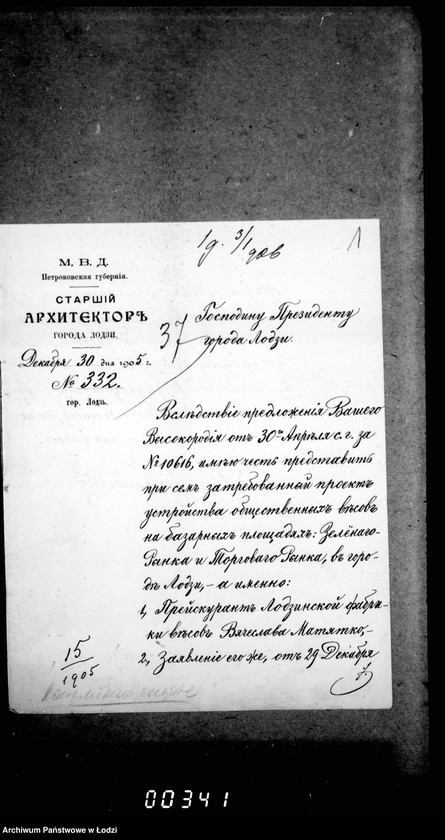 1д. 3/1 906
1
М. В. Д.
Петроковская губернія.
СТАРШІЙ
АРХИТЕКТОРЪ
ГОРОДА ЛОДЗИ.
Декабря 30 дня 1905 г.
№ 332.
гор. Лодзь.
37
Господину Президенту
города Лодзи.
Вслѣдствіе предложенія Вашего
Высокородія отъ 30го Апрѣля с. г. за
№ 10616, имѣю честь представить
при семъ затребованный проектъ
устройства общественныхъ вѣсовъ
на базарныхъ площадяхъ: Зелёнаго-
Рынка и Торговаго Рынка, въ горо-
дѣ Лодзи, – а именно:
1, Прейскурантъ Лодзинской фабри-
ки вѣсовъ Вячеслава Матятко, –
2, Заявленіе его же, отъ 29 Декабря
15
1905
00341
Archiwum Państwowe w Łodzi